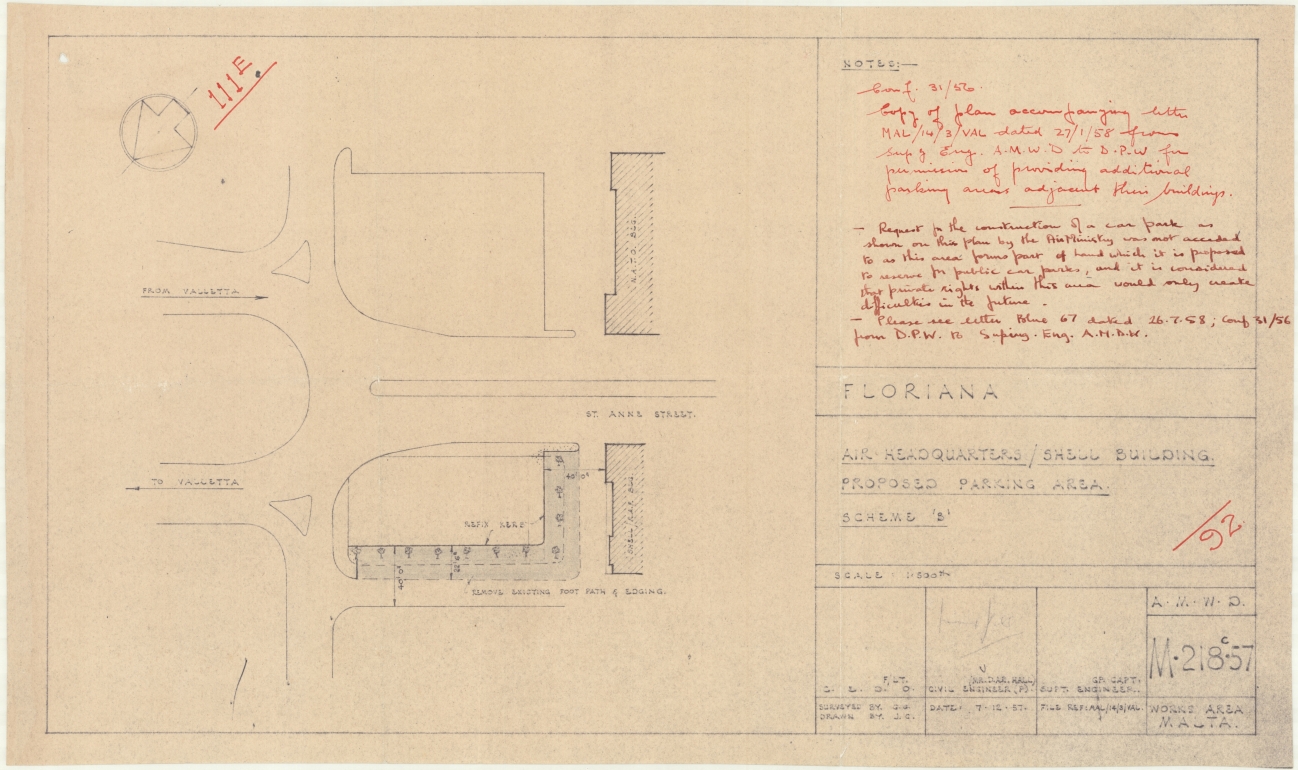 111E
NOTES:—
Conf. 31/56.
Copy of plan accompanying letter
MAL/14/3/VAL dated 27/1/58 from
Sup'g Eng. A.M.W.D to D.P.W for
permission of providing additional
parking areas adjacent their buildings.
— Request for the construction of a car park as
shown on this plan by the Air Ministry was not acceded
to as this area forms part of land which it is proposed
to reserve for public car parks, and it is considered
that private rights within this area would only create
difficulties in the future.
— Please see letter Blue 67 dated 26.7.58; Conf 31/56
from D.P.W. to Suping. Eng. A.M.D.W.
FROM VALLETTA
N.A.T.O. BLG.
ST. ANNE STREET.
TO VALLETTA
40'0"
REFIX KERB
40'0"
REMOVE EXISTING FOOT PATH & EDGING.
FLORIANA
AIR HEADQUARTERS/SHELL BUILDING.
PROPOSED PARKING AREA.
SCHEME 'B'
92
SCALE 1:500
A.M.W.D.
M.218c.57
F/LT.
CIVIL ENGINEER (P).
GP. CAPT.
SUPT. ENGINEER.
SURVEYED BY. G.G.
DRAWN BY. J.G.
DATE: 7.12.57.
FILE REF: MAL/14/3/VAL.
WORKS AREA
MALTA.